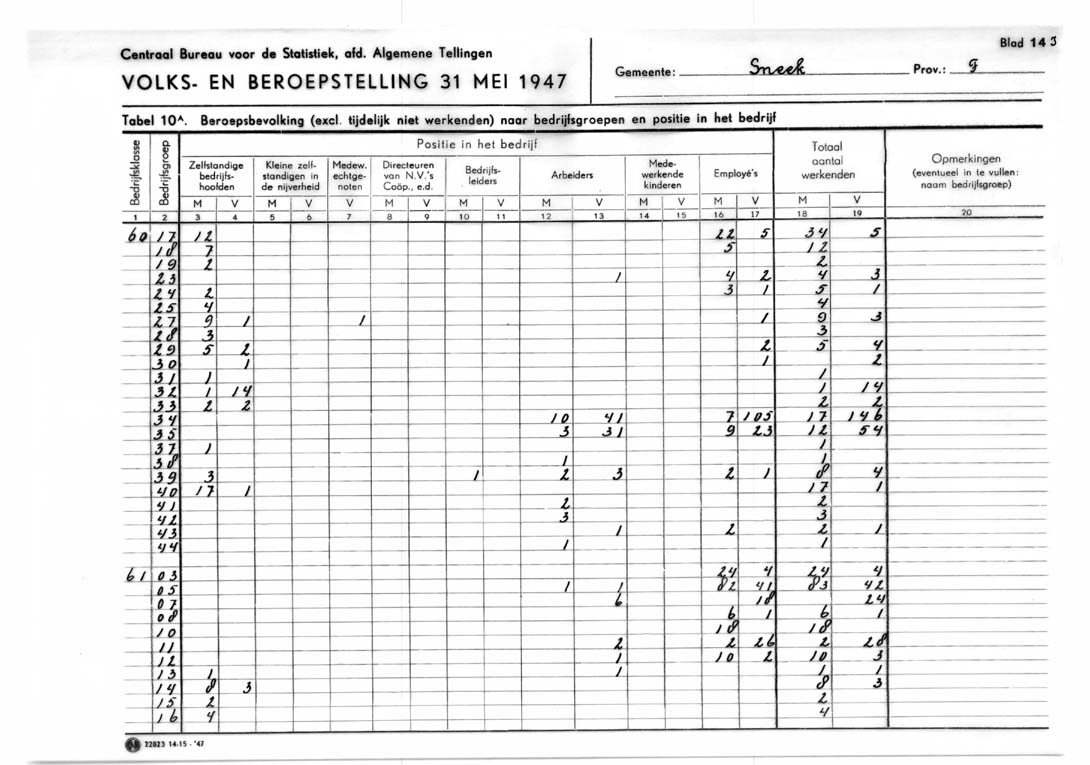 Blad 143
Centraal Bureau voor de Statistiek, afd. Algemene Tellingen
VOLKS- EN BEROEPSTELLING 31 MEI 1947
Gemeente: Sneek Prov.: F
Tabel 10A. Beroepsbevolking (excl. tijdelijk niet werkenden) naar bedrijfsgroepen en positie in het bedrijf
Bedrijfsklasse
Bedrijfsgroep
Positie in het bedrijf
Zelfstandige bedrijfs-hoofden
Kleine zelf-standigen in de nijverheid
Medew. echtge-noten
Directeuren van N.V.'s Coöp., e.d.
Bedrijfs-leiders
Arbeiders
Mede-werkende kinderen
Employé's
Totaal aantal werkenden
Opmerkingen (eventueel in te vullen: naam bedrijfsgroep)
M V M V V M V M V M V M V M V M V
1 2 3 4 5 6 7 8 9 10 11 12 13 14 15 16 17 18 19 20
60 17 12 22 5 34 5
18 7 5 12
19 2 2
23 1 4 2 4 3
24 2 3 1 5 1
25 4 4
27 9 1 1 1 9 3
28 3 3
29 5 2 2 5 4
30 1 1 2
31 1 1
32 1 14 1 14
33 2 2 2 2
34 10 41 7 105 17 146
35 3 31 9 23 12 54
37 1 1
38 1 1
39 3 1 2 3 2 1 8 4
40 17 1 17 1
41 2 2
42 3 3
43 1 2 2 1
44 1 1
61 03 24 4 24 4
05 1 1 82 41 83 42
07 6 18 24
08 6 1 6 1
10 18 18
11 2 2 26 2 28
12 1 10 2 10 3
13 1 1 1 1
14 8 3 8 3
15 2 2
16 4 4
22823 14-15 - '47